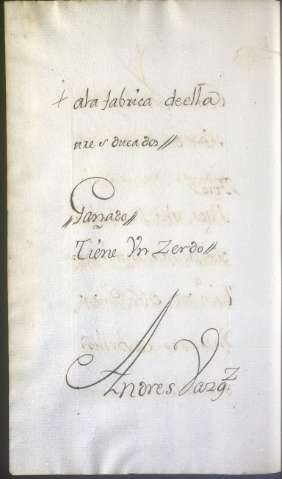 + ala fabrica deella
nueve ducados //
Ganado //
Tiene Vn Zerdo //
Andres Vazqz